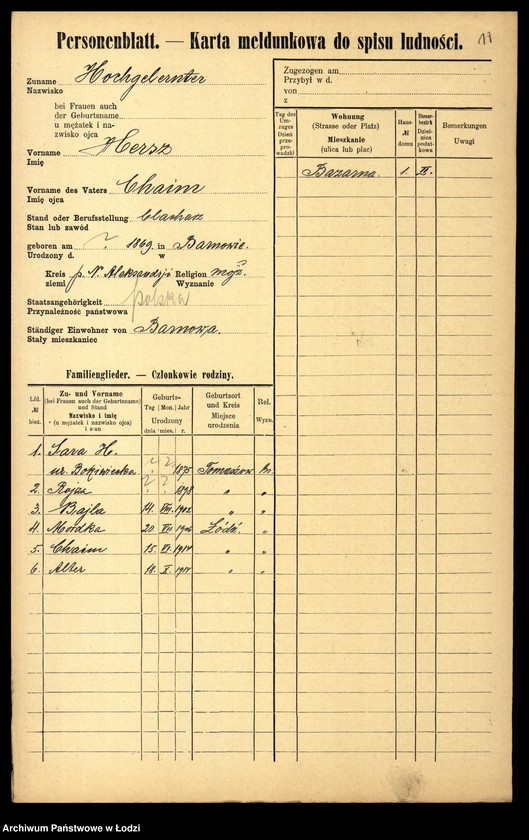 Personenblatt. — Karta meldunkowa do spisu ludności.
11
Zuname Hochgelernter
Nazwisko
bei Frauen auch
der Geburtsname
u mężatek i na-
zwisko ojca
Vorname Hersz
Imię
Vorname des Vaters Chaim
Imię ojca
Stand oder Berufsstellung
Stan lub zawód
geboren am ? 1869 in Barnowie.
Urodzony d. w
Kreis p. N. Aleksandrja Religion mojż.
ziemi Wyznanie
Staatsangehörigkeit polska
Przynależność państwowa
Ständiger Einwohner von Barnowa.
Stały mieszkaniec
Zugezogen am
Przybył w d.
von
z
Tag des Um-zuges
Dzień prze-prowadzki
Wohnung
(Strasse oder Platz)
Mieszkanie
(ulica lub plac)
Haus-
№
domu
Steuer-bezirk
Dziel-nica podat-kowa
Bemerkungen
Uwagi
Bazarna. 1. II.
Familienglieder. — Członkowie rodziny.
Lfd.
№
bież.
Zu- und Vorname
(bei Frauen auch der Geburtsname)
und Stand
Nazwisko i imię
(u mężatek i nazwisko ojca)
i stan
Geburts-
Tag Mon. Jahr
Urodzony
dnia mies. r.
Geburtsort
und Kreis
Miejsce
urodzenia
Rel.
Wyzn.
1. Sara H.
ur. ? ? 1875 Tomaszow
2. Rojza ? ? 1898 " "
3. Bajla 14. VIII. 1902 " "
4. Mordka 20 1906 Łódź. "
5. Chaim 15. VI. 1914 " "
6. Alter 18. X. " "
Archiwum Państwowe w Łodzi